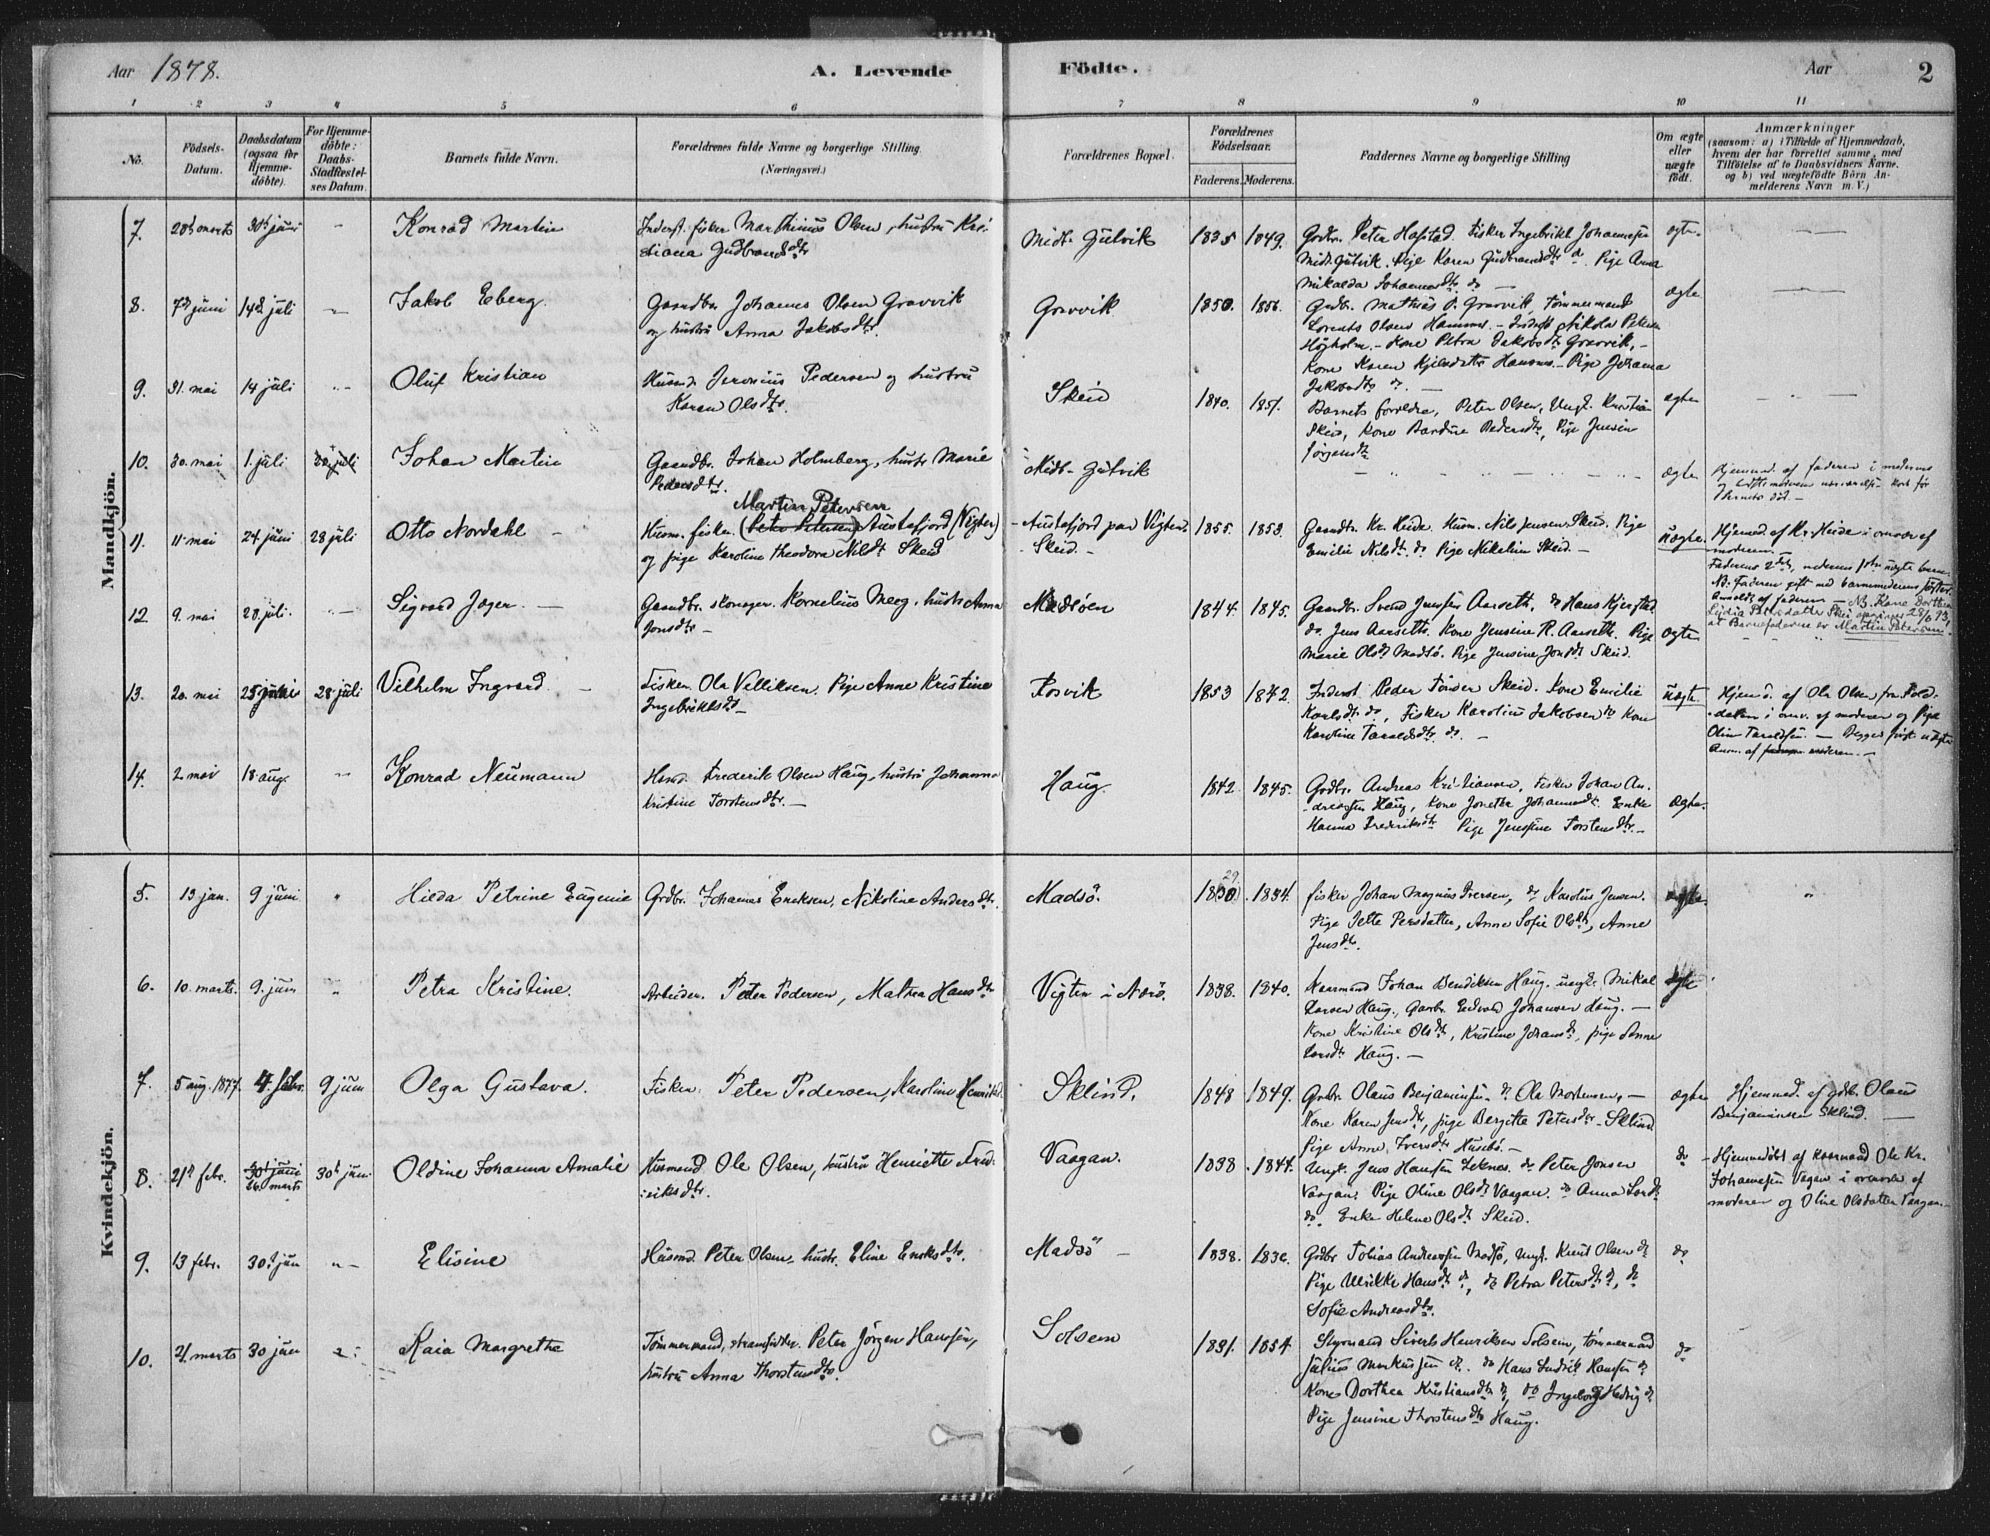 Aar 1878. A. Levende Födte. Aar 2
1 2 3 4 5 6 7 8 9 10 11
No. Födsels-Datum. Daabsdatum (ogsaa for Hjemme-döbte). For Hjemme-döbte: Daabs-Stadfæstel-ses Datum. Barnets fulde Navn. Forældrenes fulde Navne og borgerlige Stilling. (Næringsvei.) Forældrenes Bopæl. Forældrenes Födselsaar. Faderens. Moderens. Faddernes Navne og borgerlige Stilling Om ægte eller uægte födt. Anmærkninger (saasom: a) i Tilfælde af Hjemmedaab, hvem der har forrettet samme, med Tilföielse af to Daabsvidners Navne. og b) ved uægtefödte Börn An-melderens Navn m. V.)
Mandkjön.
7. 28de marts 30te juni Konrad Martin Inderst. fisker Marthinus Olsen, hustru Kri-
stiana Gudbrandsdtr Midt-Gutvik 1835 1849. Grdbr. Peter Hafstad. Fisker Ingebrikt Johannesen
Midt Gutvik. Pige Karen Gudbrandsdtr do. Pige Anna
Mikalda Johannesdtr do ægte.
8. 7de juni 14de juli Jakob Eberg. Gaardbr. Johannes Olsen Gravvik
og hustru Anna Jakobsdtr. Gravvik 1850. 1856. Grdbr. Mathias P. Gravvik, Tömmermand
Lorents Olsen Hammer. - Inderst Nikolai Petersen
Høiholm. - Kone Petra Jakobsdtr Gravvik, -
Kone Karen Hammer - Pige Johanna
Jakobsdtr do. ægte
9. 31. mai 14 juli Oluf Kristian Husmd. Jeronius Pedersen og hustru
Karen Olsdtr. Skeid 1840. 1851. Barnets forældre, Peter Olsen, Ungk. Kristian
Skeid, Kone Pedersdtr, Pige Jensine
Jörgensdtr ægte
10. 30. mai 1. juli 28 juli Johan Martin Gaardbr. Johan Holmberg, hustr. Marie
Pedersdtr. Midt-Gutvik ægte Hjemmed. af faderen i moderens
nærværelse kort før
Barnets död. -
11. 11 mai 24. juni 28 juli Otto Nordahl Martin Petersen
Husm. fisker (Peter Petersen) Austafjord (Vigten)
og pige Karoline Theodora Nilsdt Skeid Austafjord paa Vigten.
Skeid. - 1855. 1853. Gaardbr. Kr. Heide. Husm. Nils Jensen Skeid. Pige
Emilie Nilsdt. do Pige Nikoline Skeid. - uægte. Hjemmed. af Kr. Heide i overvær af
moderen.
Faderens 2det, moderens 1ste uægte barn.
NB. Faderen gift med barnemoderens söster.
Anmeldt af faderen - NB. Kone Dorthea
Lydia Petersdatter Skei opgiver 28/6 93,
at Barnefaderen er Martin Petersen.
12 9. mai 28 juli. Sigvard Jager. Gaardbr. skomager. Kornelius Meeg. hustr. Anna
Jonsdtr - Madsöen 1844. 1845. Gaardbr. Svend Jensen Aarseth, do Hans Kjerstad
do. Jens Aarseth. Kone Jensine R. Aarseth. Pige
Marie Olsdt Madsö. Pige Jensine Jonsdt Skeid. ægte
13. 20. mai 25 juni 28 juli Vilhelm Ingvard. Fisker Ole Villiksen. Pige Anne Kristine
Ingebriktsdt - Rosvik 1853 1842. Inderst Peder Tönder Skeid. Kone Emilie
Karlsdt. do, Fisker Karolius Jakobsen do Kone
Karoline Taraldsdtr. do. - uægte. Hjemd. af Ole Olsen fra Fold-
dalen i overv. af moderen og Pige
Oline Taraldsen. - Begges förste uægte
Anm. af moderen. -
14. 2 mai 18 aug. Konrad Neumann Husmd. Frederik Olsen Haug, hustru Johanna
Kristine Torstensdtr. - Haug. 1842 1845. Grdbr. Andreas Kristiansen, Fisker Johan An-
dreassen Haug, kone Jonetta Johannesdt. Enke
Hanna Frederiksdtr Pige Jensine Torstensdtr. - ægte.
Kvindekjön.
5. 13 jan. 9 juni Hilda Petrine Eugenie Grdbr. Johannes Ericksen, Nikoline Andersdtr. Madsö. 29.
18(30) 1834. fisker Johan Magnus Iversen, do Karolus Jensen.
Pige Jette Persdatter, Anne Sofie Olsdt, Anne
Jensdtr. ægte.
6. 10. marts. 9. juni Petra Kristine. Arbeider. Peter Pedersen, Mathea Hansdtr Vigten i Nærö. 1838. 1840. Kaarmand Johan Bendiksen Haug. ungk. Mikal
Larsen Haug., Gaardb. Edvard Johansen Haug. -
Kone Kristine Olsdt, Kristine Johansdt, pige Anne
Larsdt. Haug. - ægte
7. 5 aug. 1877. 4. febr. 9 juni Olga Gustava. Fisker. Peter Pedersen, Karoline Henriksd. Sklind. 1848 1849. Grdbr. Olaus Benjaminsen do Ole Mortensen, -
Kone Karen Jensdtr, pige Bergitte Petersdtr - Sklind
Pige Anne Iversdtr Huseby. - ægte Hjemmed. af gdbr. Olaus
Benjaminsen Sklind.
8. 21de febr. 30te juni
26 marts 30te juni Oldine Johanna Amalie Husmand. Ole Olsen, hustru Henriette Fred-
riksdtr. Vaagan. 1838 1844. Ungk. Jens Hansen Leknes. do Peter Jonsen
Vaagan. Pige Oline Olsdt Vaagan. do Anna Larsdt
do. Enke Helene Olsdt Skeid. do - Hjemmedöbt af kaarmand Ole Kr.
Johannesen Vaagan i overvær af
moderen og Oline Olsdatter Vaagan. -
9. 13 febr. 30te jun Elisine Husmd. Peter Olsen, hustr. Eline Eriksdtr. Madsö - 1838. 1836. Grdbr Tobias Andreassen Madsö, ungk. Knut Olsen do
Pige Ulrikke Hansdt do, do Petra Petersdtr do, do
Sofie Andreasdtr. do
10. 21. marts 30 juni Kaia Margretha Tömmermand, strandsidder. Peter Jörgen Hansen,
hustru Anna Thorstensdtr. Solsem 1831. 1854 Styrmand Sivert Henriksen Solsem, tömmermand
Julius Markussen do. do Hans Ludvik Hansen do
Kone Dorthea Kristiansdtr do, do Ingeborg Hedvig do
Pige Jensine Thorstensdtr Haug. do